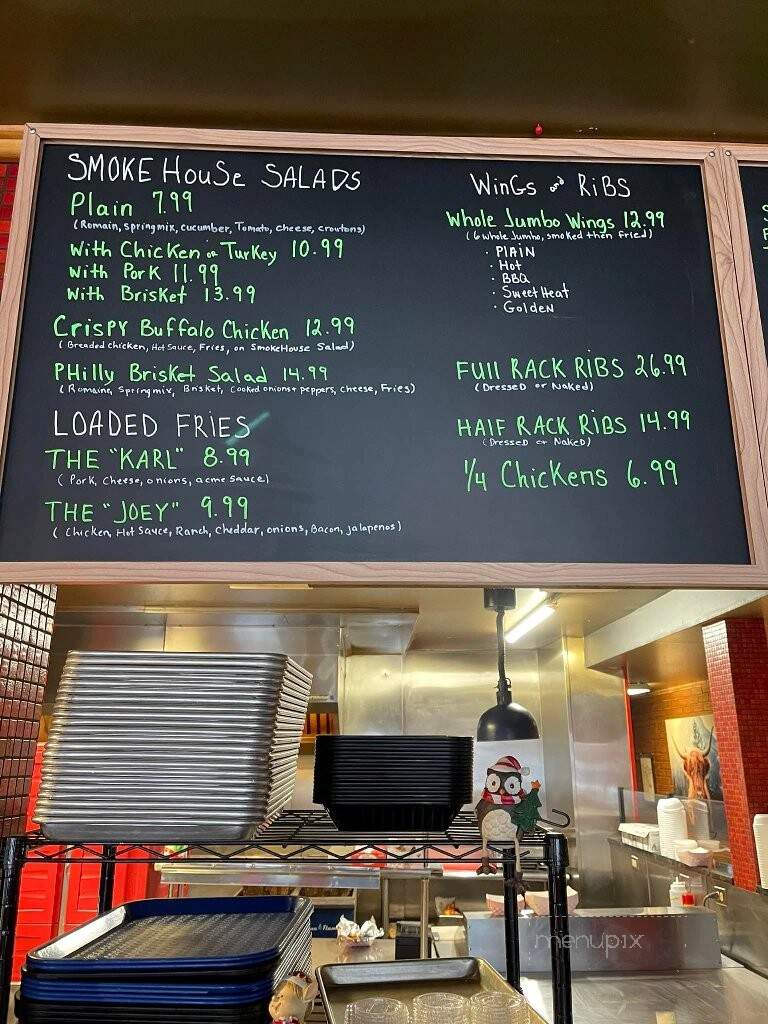 SMOKE HouSe SALADS
Plain 7.99
(Romain, springmix, cucumber, Tomato, cheese, croutons)
With Chicken or Turkey 10.99
with Pork 11.99
with Brisket 13.99
Crispy Buffalo Chicken 12.99
(Breaded chicken, Hot Sauce, Fries, on SmokeHouse Salad)
PHilly Brisket Salad 14.99
(Romaine, Springmix, Brisket, cooked onions + peppers, cheese, Fries)
LOADED FRIES
THE "KARL" 8.99
(Pork, cheese, onions, acme sauce)
THE "JOEY" 9.99
(Chicken, Hot Sauce, Ranch, Cheddar, onions, Bacon, jalapenos)
WinGs and RiBS
Whole Jumbo Wings 12.99
(6 whole Jumbo, smoked then fried)
· PLAIN
· Hot
· BBQ
· Sweet Heat
· Golden
FUll RACK RiBS 26.99
(Dressed or Naked)
HAlF RACK RiBS 14.99
(Dressed or Naked)
1/4 Chickens 6.99
menupix